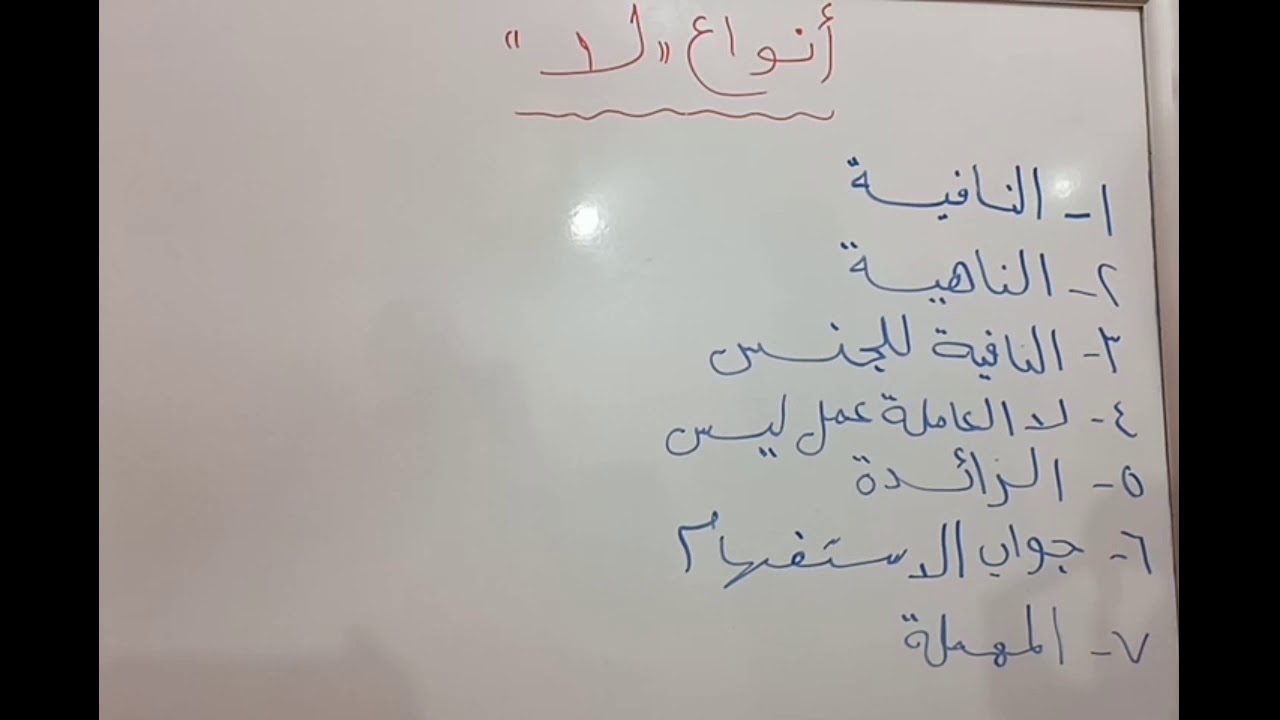 أنواع «لا»
١- النافية
٢- الناهية
٣- النافية للجنس
٤- لا العاملة عمل ليس
٥- الزائدة
٦- جواب الاستفهام
٧- المهملة